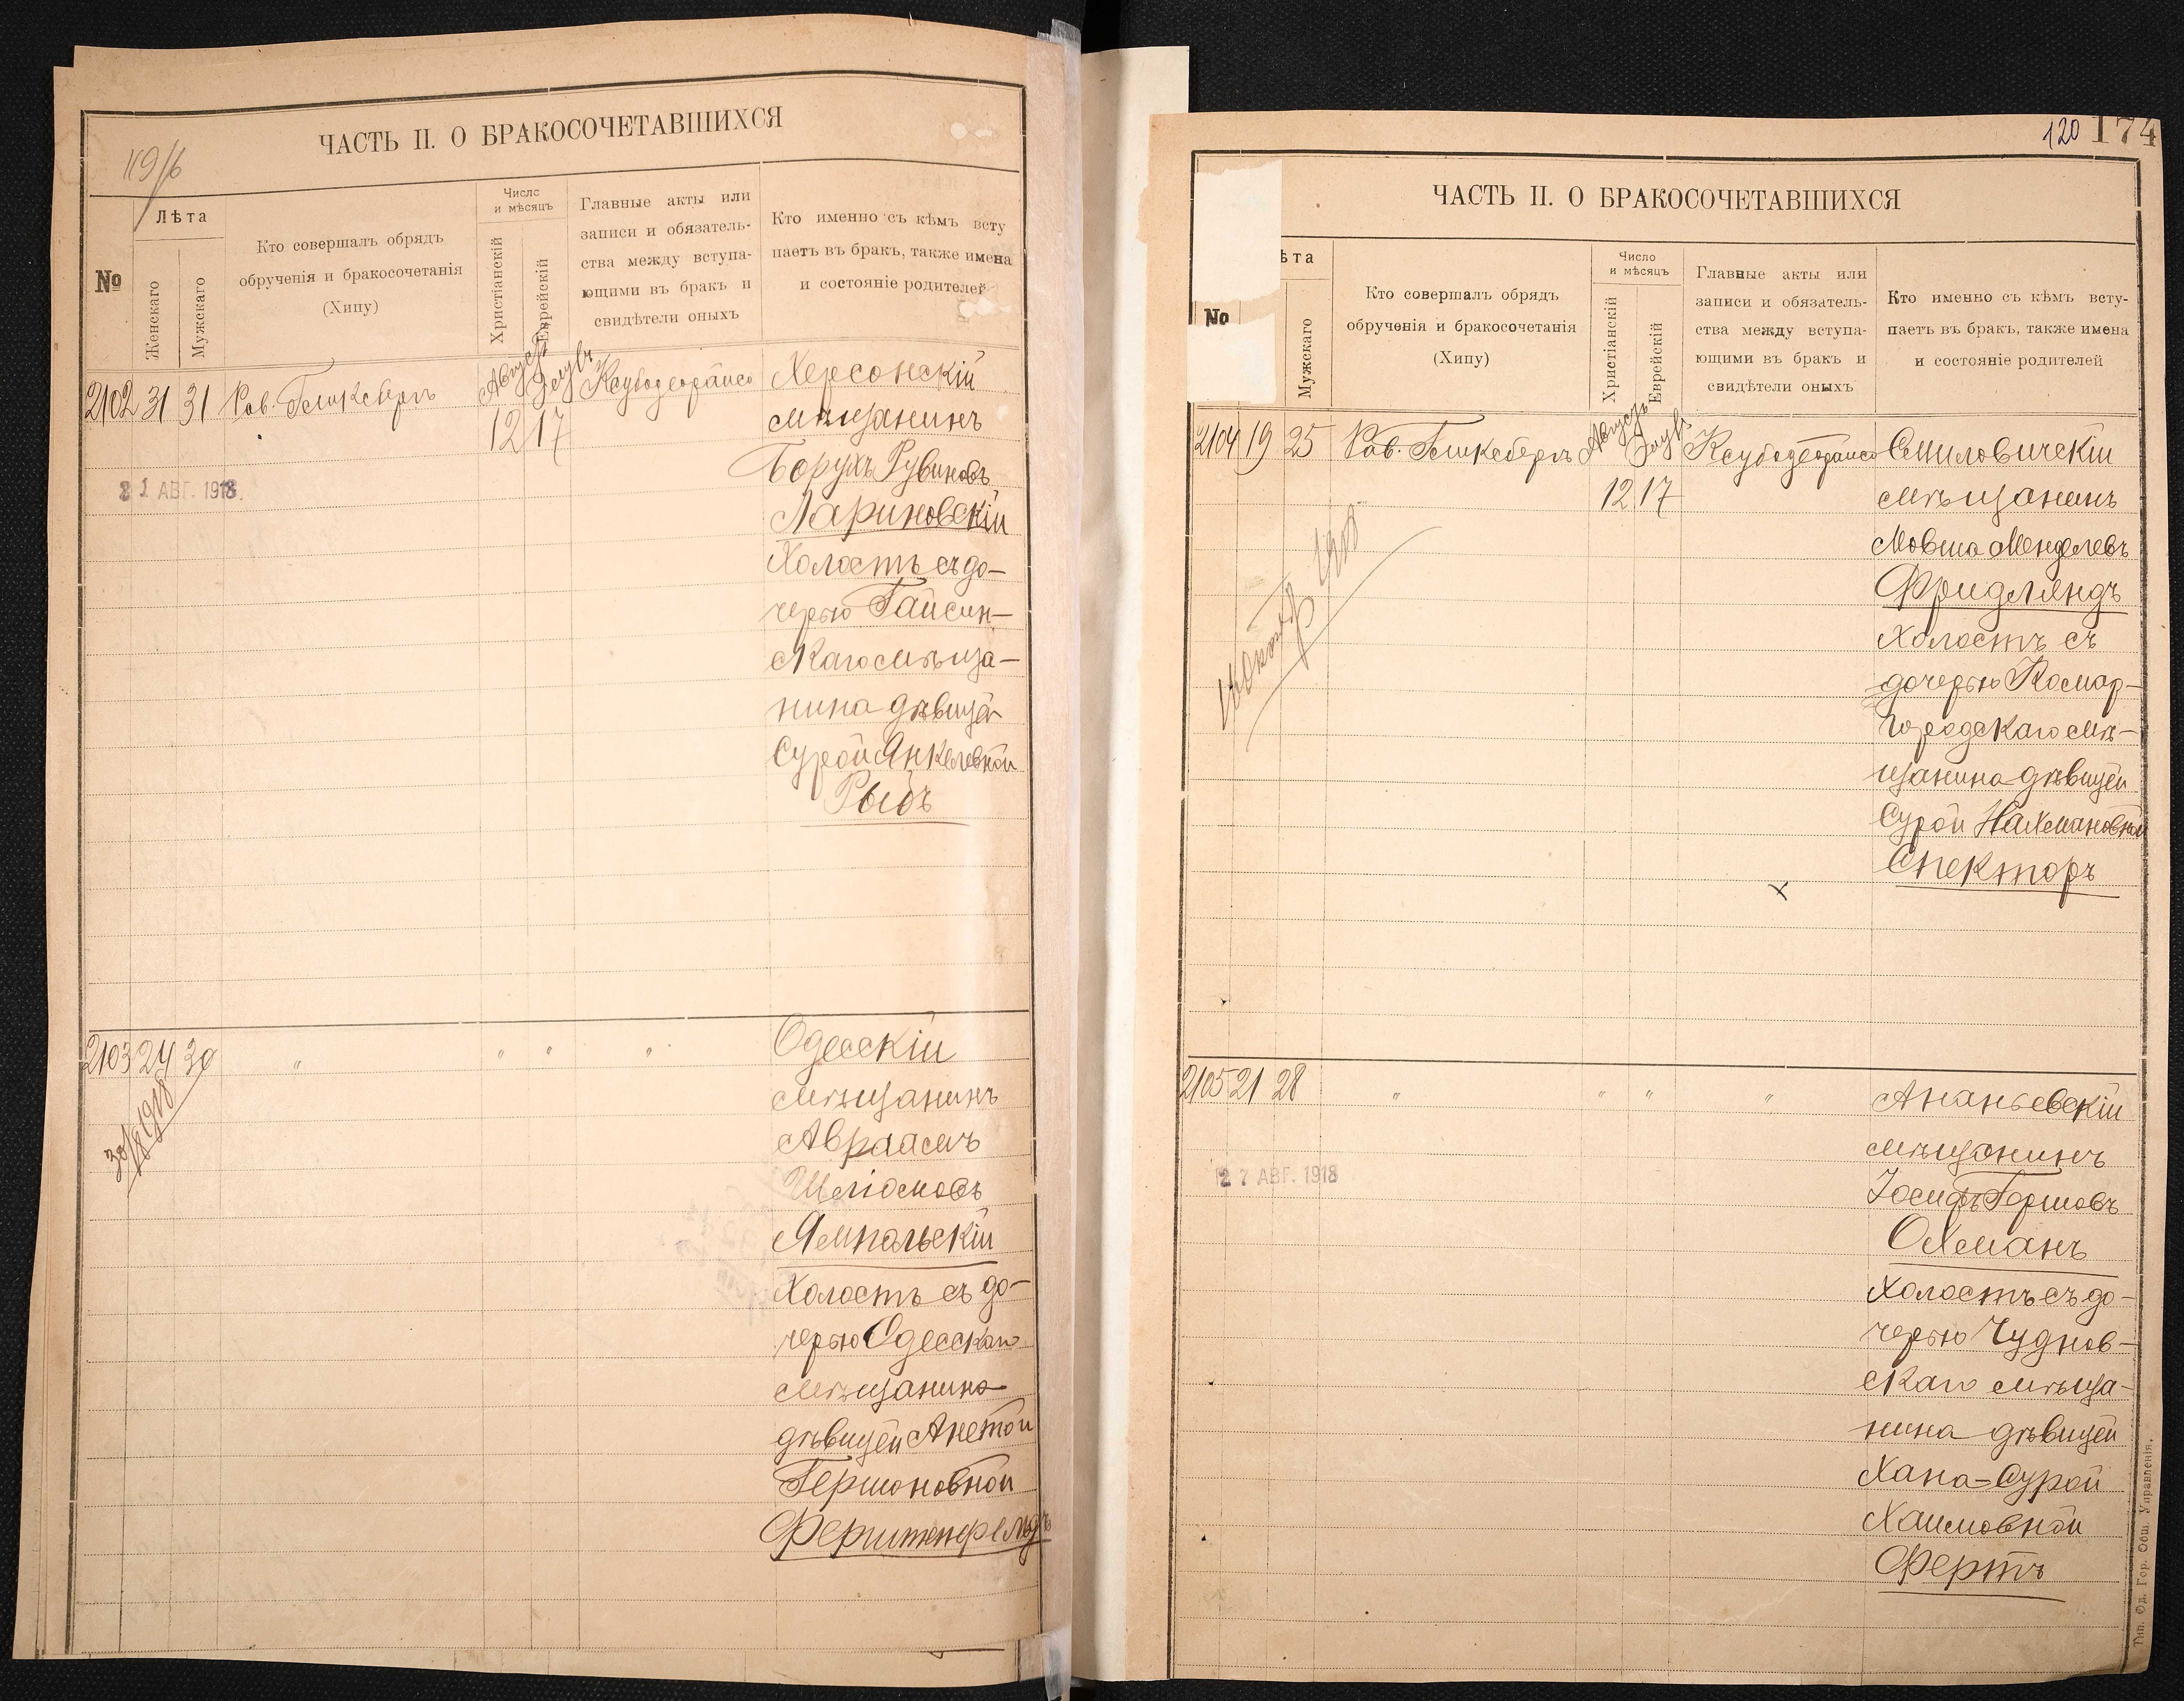 119/б
ЧАСТЬ II. О БРАКОСОЧЕТАВШИХСЯ
№
Лѣта
Женскаго
Мужскаго
Кто совершалъ обрядъ
обрученія и бракосочетанія
(Хипу)
Число
и мѣсяцъ
Христіанскій
Еврейскій
Главные акты или
записи и обязатель-
ства между вступа-
ющими въ бракъ и
свидѣтели оныхъ
Кто именно съ кѣмъ всту
паетъ въ бракъ, также имена
и состояніе родителей
2102 31 31 Рав. Гликсбергъ Августъ Элулъ Херсонскій
12 17 мѣщанинъ
Борухъ Рувиновъ
21 АВГ. 1918.
Лариновскій
Холостъ съ до-
черью Гайсин-
скаго мѣща-
нина дѣвицей
Сурой Янкелевной
Рыбъ
2103 24 30 " " " " Одесскій
30/8 1918
мѣщанинъ
Авраамъ
Шліомовъ
Ямпольскій
Холостъ съ до-
черью Одесскаго
мѣщанина
дѣвицей Анетой
Гершоновной
Ферштенфельдъ
120 174
ЧАСТЬ II. О БРАКОСОЧЕТАВШИХСЯ
№
ѣта
Мужскаго
Кто совершалъ обрядъ
обрученія и бракосочетанія
(Хипу)
Число
и мѣсяцъ
Христіанскій
Еврейскій
Главные акты или
записи и обязатель-
ства между вступа-
ющими въ бракъ и
свидѣтели оныхъ
Кто именно съ кѣмъ всту-
паетъ въ бракъ, также имена
и состояніе родителей
2104 19 25 Рав. Гликсбергъ Августъ Элулъ Смиловичскій
12 17 мѣщанинъ
Мовша Менделевъ
Фридляндъ
Холостъ съ
дочерью Комар-
городскаго мѣ-
щанина дѣвицей
Сурой Нахмановной
Спекторъ
2105 21 28 " " " " Ананьевскій
мѣщанинъ
27 АВГ. 1918
Іосифъ Гершовъ
Охманъ
Холостъ съ до-
черью Чуднов-
скаго мѣща-
нина дѣвицей
Хана-Сурой
Хаимовной
Фертъ
Тип. Од. Гор. Общ. Управленія.